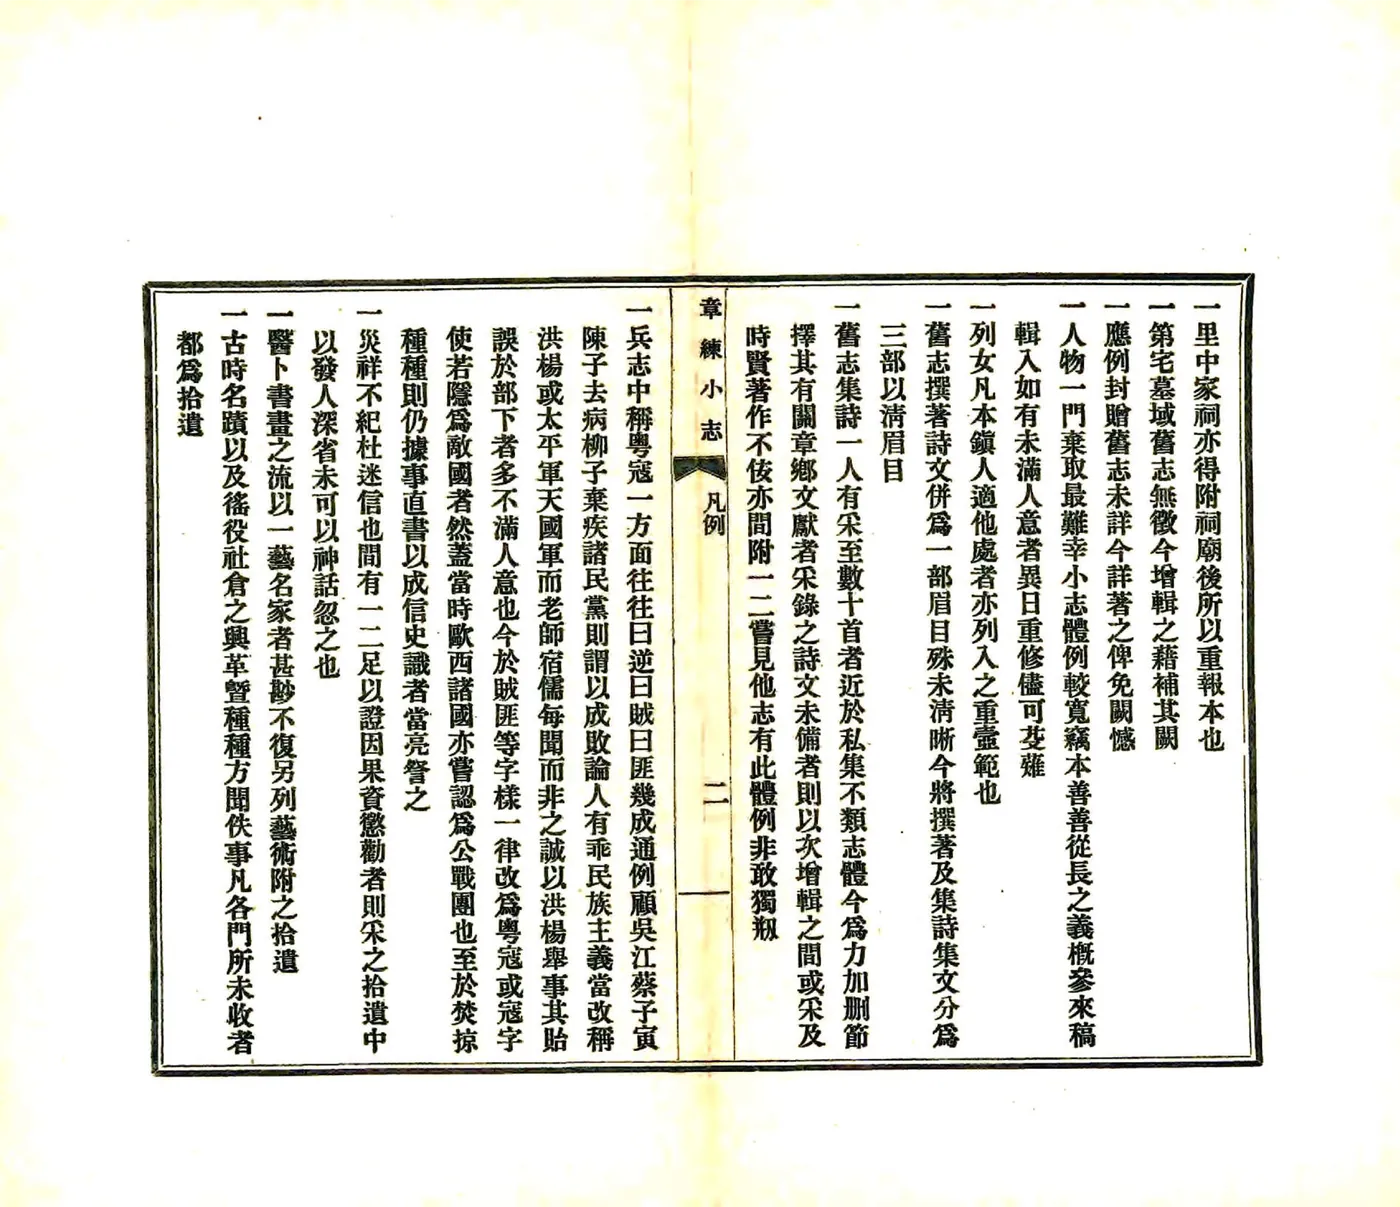 一里中家祠亦得附祠廟後所以重報本也
一第宅墓域舊志無徵今增輯之藉補其闕
一應例封贈舊志未詳今詳著之俾免闕憾
一人物一門棄取最難幸小志體例較寬竊本善善從長之義概參來稿
輯入如有未滿人意者異日重修儘可芟薙
一列女凡本鎭人適他處者亦列入之重壼範也
一舊志撰著詩文併爲一部眉目殊未淸晰今將撰著及集詩集文分爲
三部以淸眉目
一舊志集詩一人有采至數十首者近於私集不類志體今爲力加删節
擇其有關章鄕文獻者采錄之詩文未備者則以次增輯之間或采及
時賢著作不佞亦間附一二嘗見他志有此體例非敢獨剏
章練小志
凡例
二
一兵志中稱粤寇一方面往往曰逆曰賊曰匪幾成通例顧吳江蔡子寅
陳子去病柳子棄疾諸民黨則謂以成敗論人有乖民族主義當改稱
洪楊或太平軍天國軍而老師宿儒每聞而非之誠以洪楊舉事其貽
誤於部下者多不滿人意也今於賊匪等字樣一律改爲粤寇或寇字
使若隱爲敵國者然蓋當時歐西諸國亦嘗認爲公戰團也至於焚掠
種種則仍據事直書以成信史識者當亮詧之
一災祥不紀杜迷信也間有一二足以證因果資懲勸者則采之拾遺中
以發人深省未可以神話忽之也
一醫卜書畫之流以一藝名家者甚尠不復另列藝術附之拾遺
一古時名蹟以及徭役社倉之興革曁種種方聞佚事凡各門所未收者
都爲拾遺